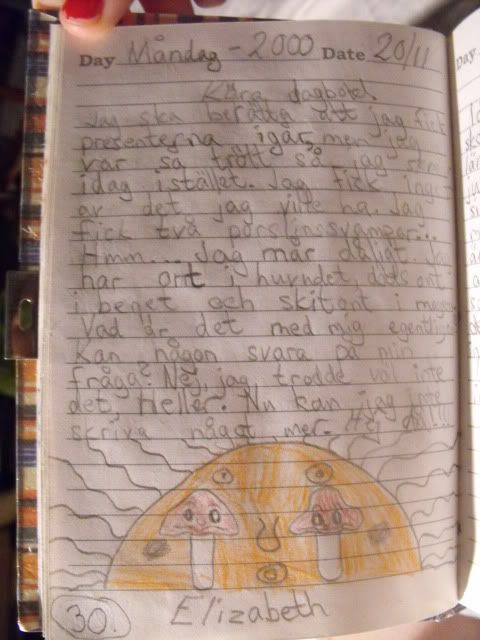 Day Måndag - 2000 Date 20/11
Kära dagbok!
Jag ska berätta att jag fick
presenterna igår men jag
var så trött så jag
idag istället. Jag fick
av det jag ville ha. Jag
fick två porslinssvampar...
Hmm... Jag mår dåligt.
har ont i huvudet, ont
i benet och skitont i
Vad är det med mig egentligen
Kan någon svara på min
fråga? Nej, jag trodde väl inte
det heller. Nu kan jag inte
skriva något mer. Hej då!!!
30.
Elizabeth